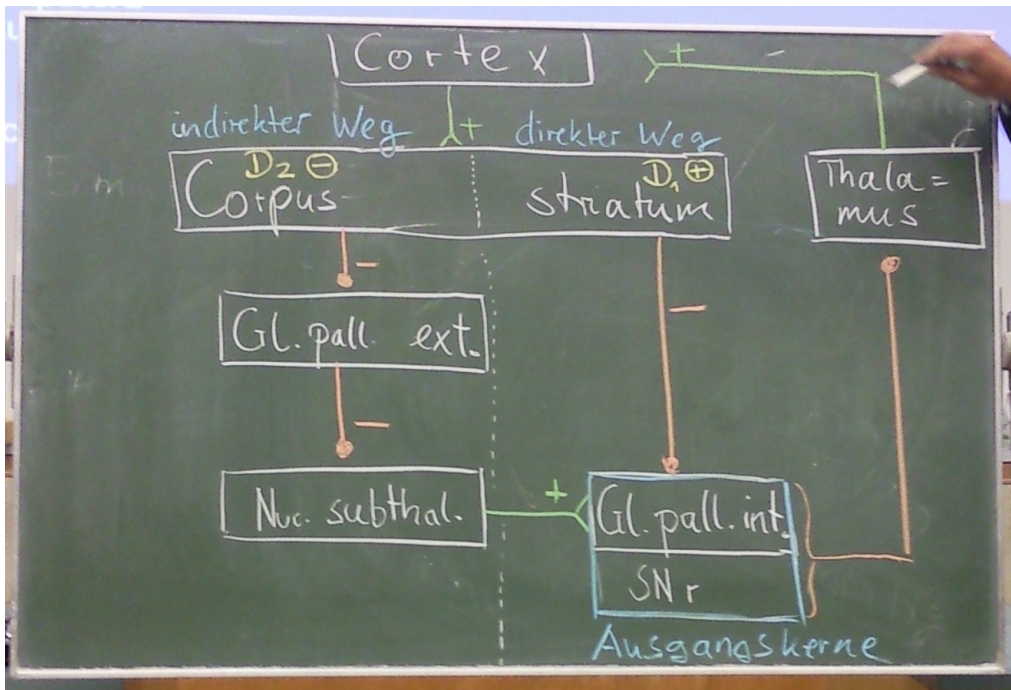 Cortex
+
-
indirekter Weg
+
direkter Weg
D2 ⊖
D1 ⊕
Corpus
striatum
Thala=
mus
-
-
Gl. pall. ext.
-
Nuc. subthal.
+
Gl. pall. int.
SNr
Ausgangskerne